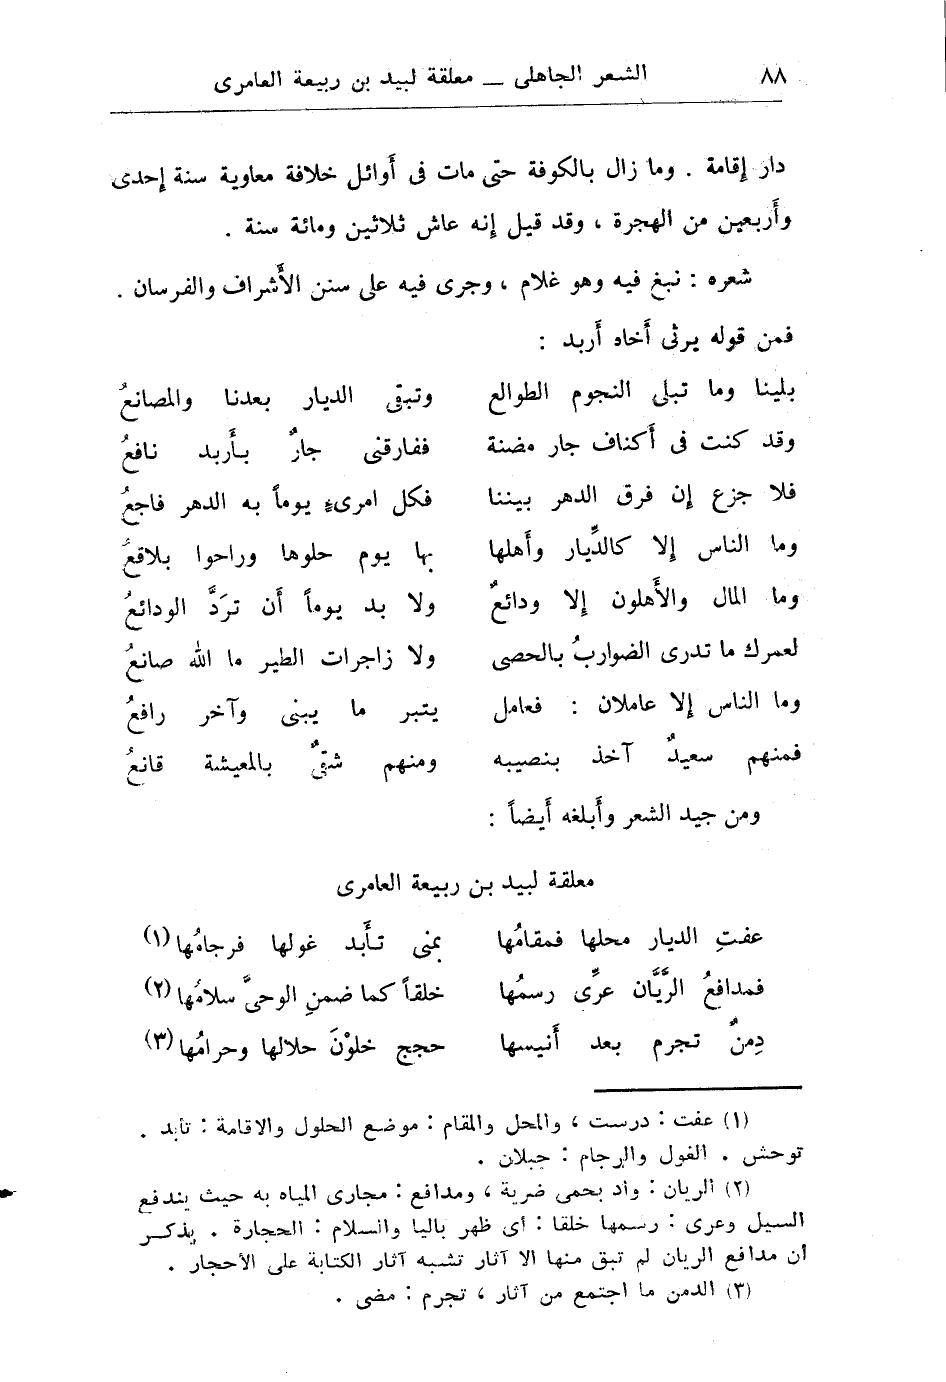 ٨٨ الشعر الجاهلى — معلقة لبيد بن ربيعة العامرى
دار إقامة . وما زال بالكوفة حتى مات فى أوائل خلافة معاوية سنة إحدى
وأربعين من الهجرة ، وقد قيل إنه عاش ثلاثين ومائة سنة .
شعره : نبغ فيه وهو غلام ، وجرى فيه على سنن الأشراف والفرسان .
فمن قوله يرثى أخاه أربد :
بلينا وما تبلى النجوم الطوالع وتبقى الديار بعدنا والمصانعُ
وقد كنت فى أكناف جار مضنة ففارقنى جارٌ بأربد نافعُ
فلا جزع إن فرق الدهر بيننا فكل امرىء يوماً به الدهر فاجعُ
وما الناس إلا كالدِّيار وأهلها بها يوم حلوها وراحوا بلاقعُ
وما المال والأهلون إلا ودائعٌ ولا بد يوماً أن ترَدَّ الودائعُ
لعمرك ما تدرى الضواربُ بالحصى ولا زاجرات الطير ما الله صانعُ
وما الناس إلا عاملان : فعامل يتبر ما يبنى وآخر رافعُ
فمنهم سعيدٌ آخذ بنصيبه ومنهم شقىٌّ بالمعيشة قانعُ
ومن جيد الشعر وأبلغه أيضاً :
معلقة لبيد بن ربيعة العامرى
عفتِ الديار محلها فمقامُها بمنى تأَبد غولها فرجامُها (١)
فمدافعُ الرَّيَّان عرِّى رسمُها خلقاً كما ضمنِ الوحىَّ سلامُها (٢)
دِمنٌ تجرم بعد أنيسها حجج خلوْنَ حلالها وحرامُها (٣)
(١) عفت : درست ، والمحل والمقام : موضع الحلول والاقامة : تأبد .
توحش . الغول والرجام : جبلان .
(٢) الريان : واد بحمى ضرية ، ومدافع : مجارى المياه به حيث يندفع
السيل وعرى : رسمها خلقا : أى ظهر باليا والسلام : الحجارة . يذكر
أن مدافع الريان لم تبق منها الا آثار تشبه آثار الكتابة على الأحجار .
(٣) الدمن ما اجتمع من آثار ، تجرم : مضى .